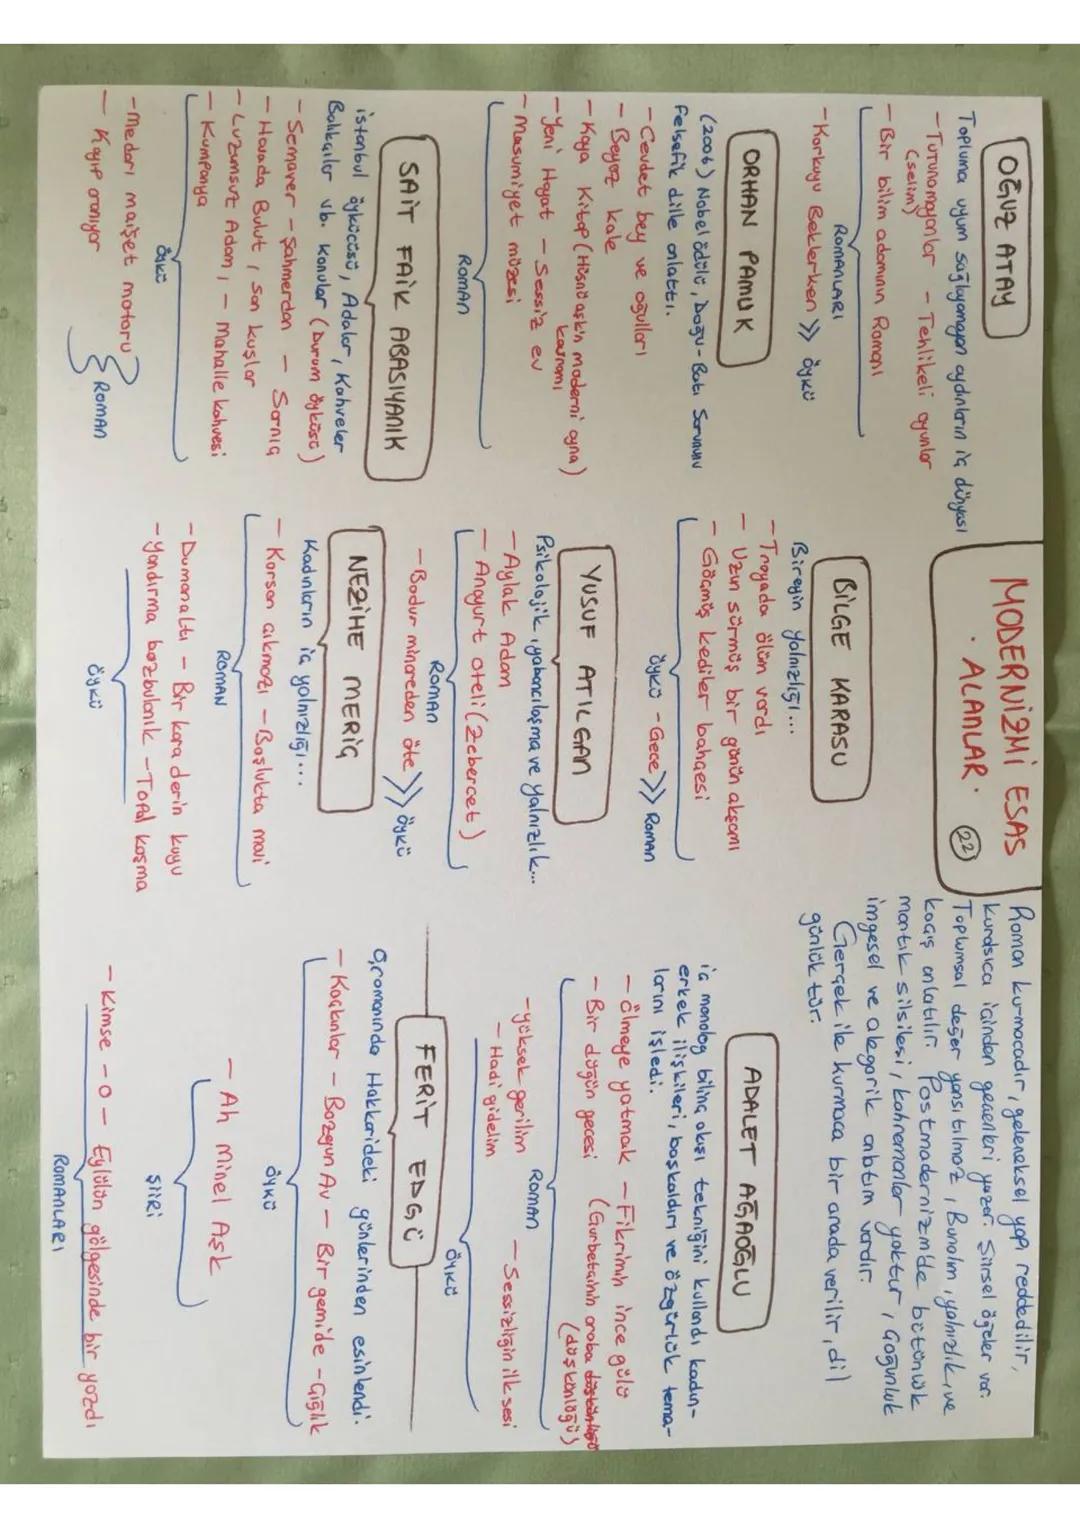 MODERNİZMİ ESAS
· ALANLAR ·
22
OĞUZ ATAY
Topluma uyum sağlayamayan aydınların iç dünyası
- Tutunamayanlar - Tehlikeli oyunlar
(selim)
- Bir bilim adamının Romanı
ROMANLARI
- Korkuyu Beklerken >> öykü
ORHAN PAMUK
(2006) Nobel ödülü, Doğu-Batı Sorununu
Felsefik dille anlattı.
- Cevdet bey ve oğulları
- Beyaz kale
- Kaya Kitap (Hüsnü aşk'ın moderni ayna)
kavramı
- Yeni Hayat - Sessiz ev
- Masumiyet müzesi
ROMAN
SAİT FAİK ABASIYANIK
istanbul öykücüsü, Adalar, Kahveler
Balıkçılar vb. konular (Durum öyküsü)
- Semaver - Şahmerdan - Sarnıç
- Havada Bulut, son kuşlar
- Luzumsuz Adam, - Mahalle kahvesi
- Kumpanya
öykü
- Medarı maişet motoru
- Kayıp aranıyor
ROMAN
BİLGE KARASU
Bireyin yalnızlığı...
- Troyada ölüm vardı
- Uzun sürmüş bir günün akşamı
- Göçmüş kediler bahçesi
öykü - Gece >> ROMAN
YUSUF ATILGAN
Psikolojik, yabancılaşma ve yalnızlık...
- Aylak Adam
- Anayurt oteli (Zebercet)
ROMAN
- Bodur minareden öte >> öykü
NEZİHE MERİÇ
Kadınların iç yalnızlığı...
- Korsan çıkmazı - Boşlukta mavi
ROMAN
- Dumanaltı - Bir kara derin kuyu
- Yandırma bozbulanık - Topal koşma
öykü
Roman kurmacadır, geleneksel yapı reddedilir,
kurdsıca içinden geçenleri yazar. Şiirsel öğeler var.
Toplumsal değer yansıtılmaz, Bunalım, yalnızlık, ve
kaçış anlatılır. Postmodernizm'de bütünlük
mantık silsilesi, kahramanlar yoktur, çoğunluk
imgesel ve alegorik anlatım vardır.
Gerçek ile kurmaca bir arada verilir, dil
günlük tür.
ADALET AĞAOĞLU
iç monolog bilinç akışı tekniğini kullandı kadın-
erkek ilişkileri, başkaldırı ve özgürlük tema-
larını işledi.
- ölmeye yatmak - Fikrimin ince gülü
- Bir düğün gecesi (Gurbetçinin araba düşkünlüğü
(düşkünlüğü)
ROMAN
- yüksek gerilim - Sessizliğin ilk sesi
- Hadi gidelim
öykü
FERİT EDGÜ
O, romanında Hakkarideki günlerinden esinlendi.
- Kaçkınlar - Bozgun Av - Bir gemide - Çığlık
öykü
- Ah Minel Aşk
ŞİİRİ
- Kimse - O - Eylülün gölgesinde bir yazdı
ROMANLARI